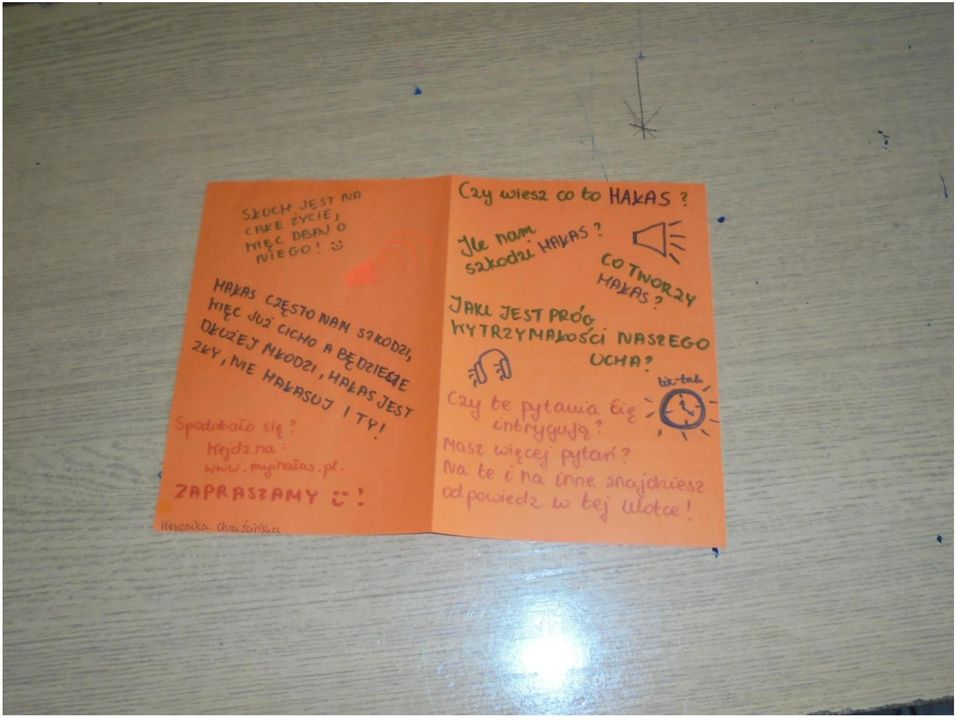 SŁUCH JEST NA
CAŁE ŻYCIE,
WIĘC DBAJ O
NIEGO!
HAŁAS CZĘSTO NAM SZKODZI,
WIĘC JUŻ CICHO A BĘDZIECIE
DŁUŻEJ MŁODZI, HAŁAS JEST
ZŁY, NIE HAŁASUJ I TY!
Spodobało się?
Wejdz na:
www.myhałas.pl.
ZAPRASZAMY !
Weronika
Czy wiesz co to HAŁAS?
Ile nam
szkodzi HAŁAS?
CO TWORZY
HAŁAS?
JAKI JEST PRÓG
WYTRZYMAŁOŚCI NASZEGO
UCHA?
tik-tak
Czy te pytania Cię
intrygują?
Masz więcej pytań?
Na te i na inne znajdziesz
odpowiedz w tej ulotce!